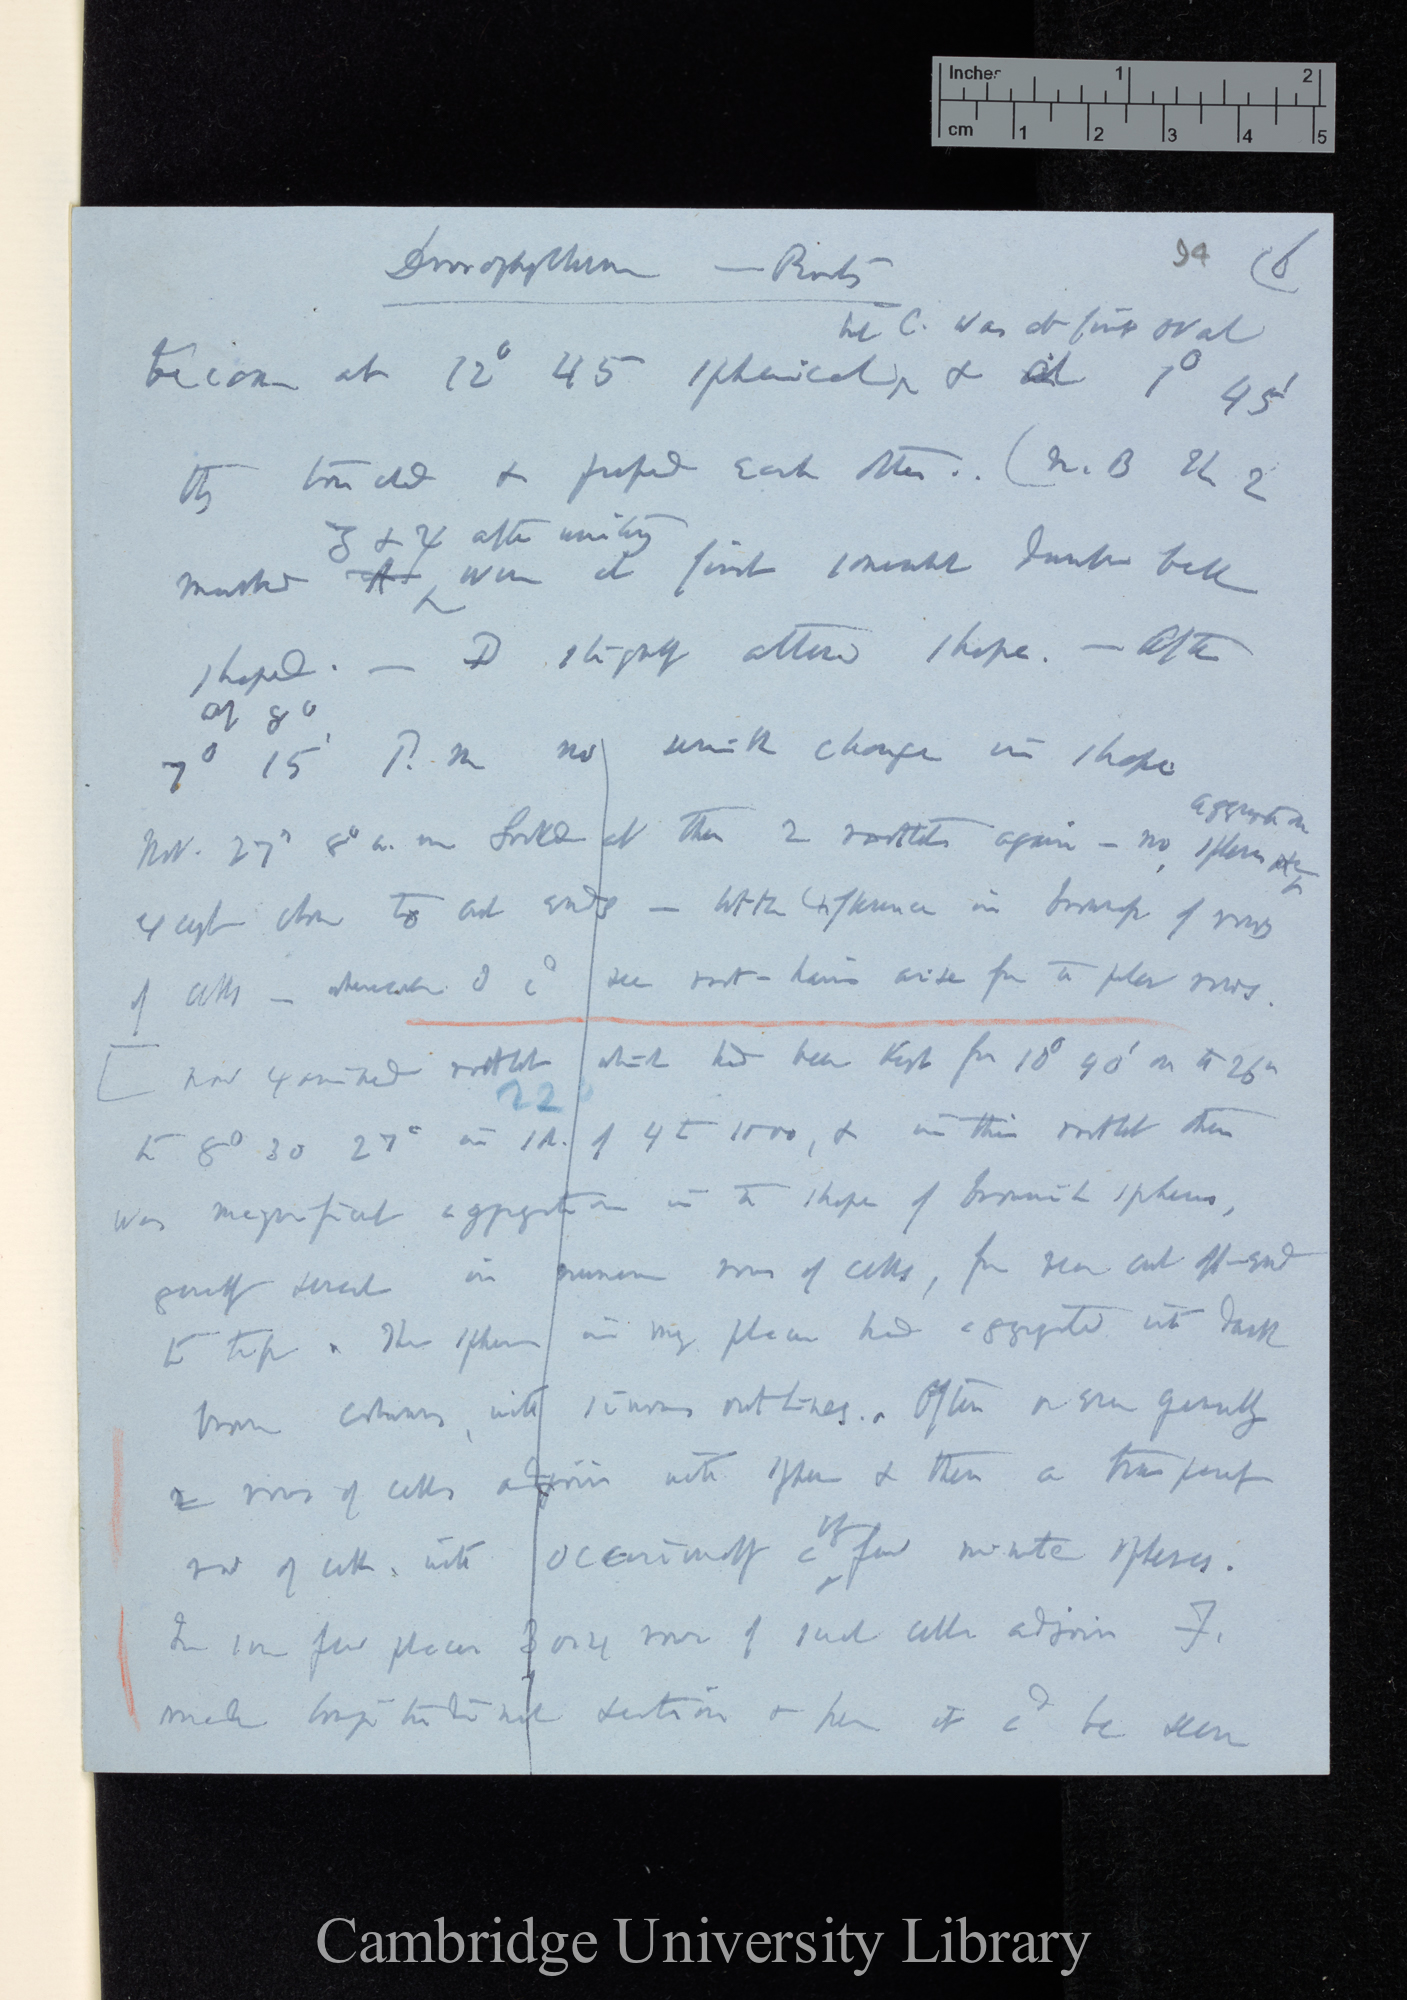 Inches 1 2
cm 1 2 3 4 5
94 (6
Drosophyllum — Roots
the C. was at first oval
became at 12° 45 spherical, & at 1° 45'
they touched & pressed each other.. (N.B The 2
3 & 4 after uniting
marked were at first somewhat dumb bell
shaped. — D slightly altered shape. — After
at 8°
7° 15' P.m no change in shape
aggregation
Nov. 27th 8° a. m looked at these 2 rootlets again — no spheres
except close to cut ends — little difference in of rows
of cells — I cd see root-hairs arise fr the paler rows.
[ Now examined rootlet which had been kept for 18° 40' on the 26th
22°
to 8° 30 27th in sol. of 4 to 1000, & in this rootlet there
was magnificent aggregation in the shape of brownish spheres,
generally several in numerous rows of cells, from near cut off-end
to tip. The spheres in many places had aggregated into dark
brown columns, with sinuous outlines. Often or even generally
2 rows of cells adjoin with spheres & then a transparent
row of cells, with occasionally a very few minute spheres.
In some few places 3 or 4 rows of such cells adjoin I.
made longitudinal section & here it cd be seen
Cambridge University Library